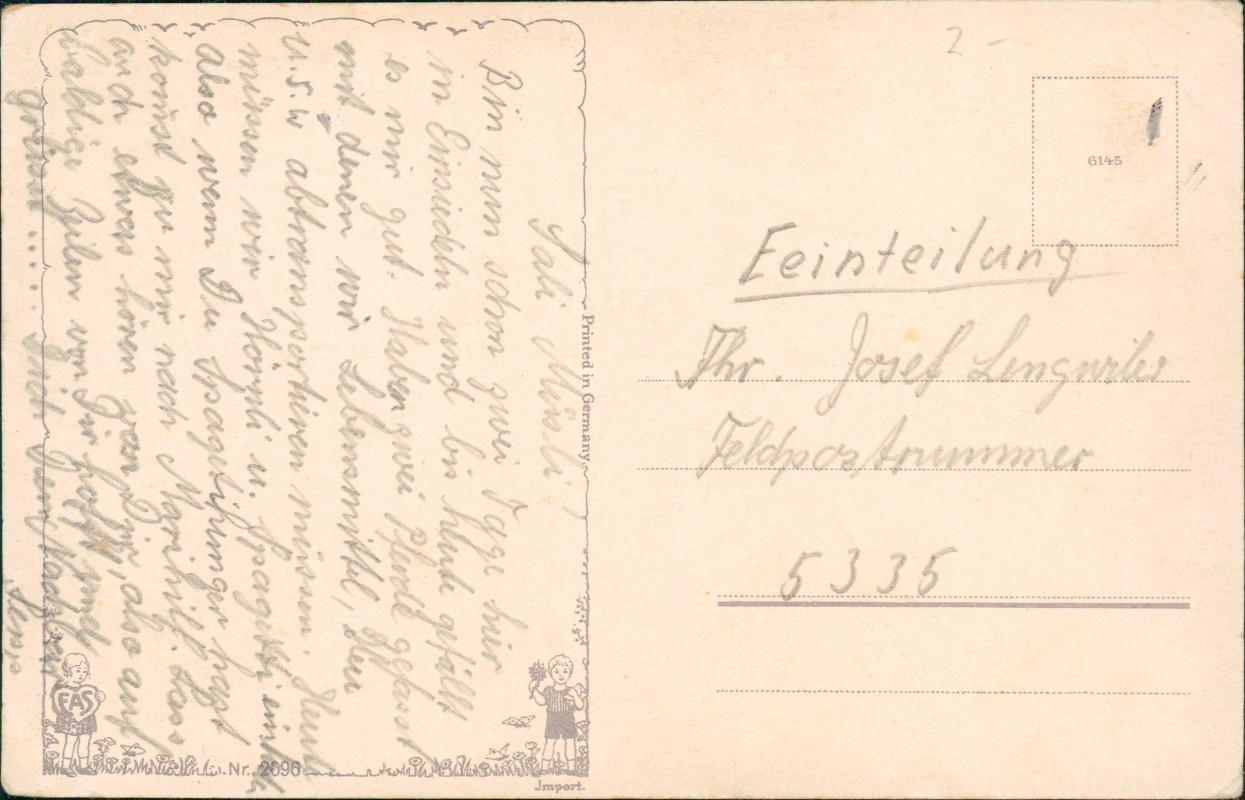 Sali Müsli!
Bin nun schon zwei Tage hier
in Einsiedeln und bis heute gefällt
es mir gut. Haben zwei Pferde gefasst
mit denen wir Lebensmittel, Heu
u.s.w abtransportieren müssen. Heute
müssen wir Hörnli u. Spagetti
also wenn Du Spagettihunger hast
komst zu mir nach Marihilf. Lass
auch etwas hören von Dir, also auf
baldige Zeilen von Dir hofft und
grüsst .... Dich Dein
Printed in Germany
FAS
Nr. 2696
Import.
2 -
6145
Eeinteilung
Thr. Josef Lengwiler
Feldpostnummer
5335